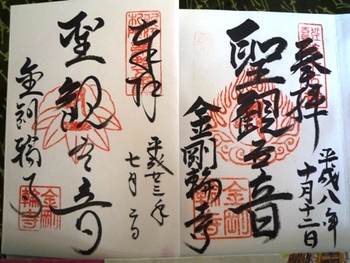 奉拝
平成八年
十月十二日
聖観世音
金剛輪寺
金剛輪寺
奉拝
平成廿三年
七月二日
聖観世音
金剛輪寺
金剛輪寺